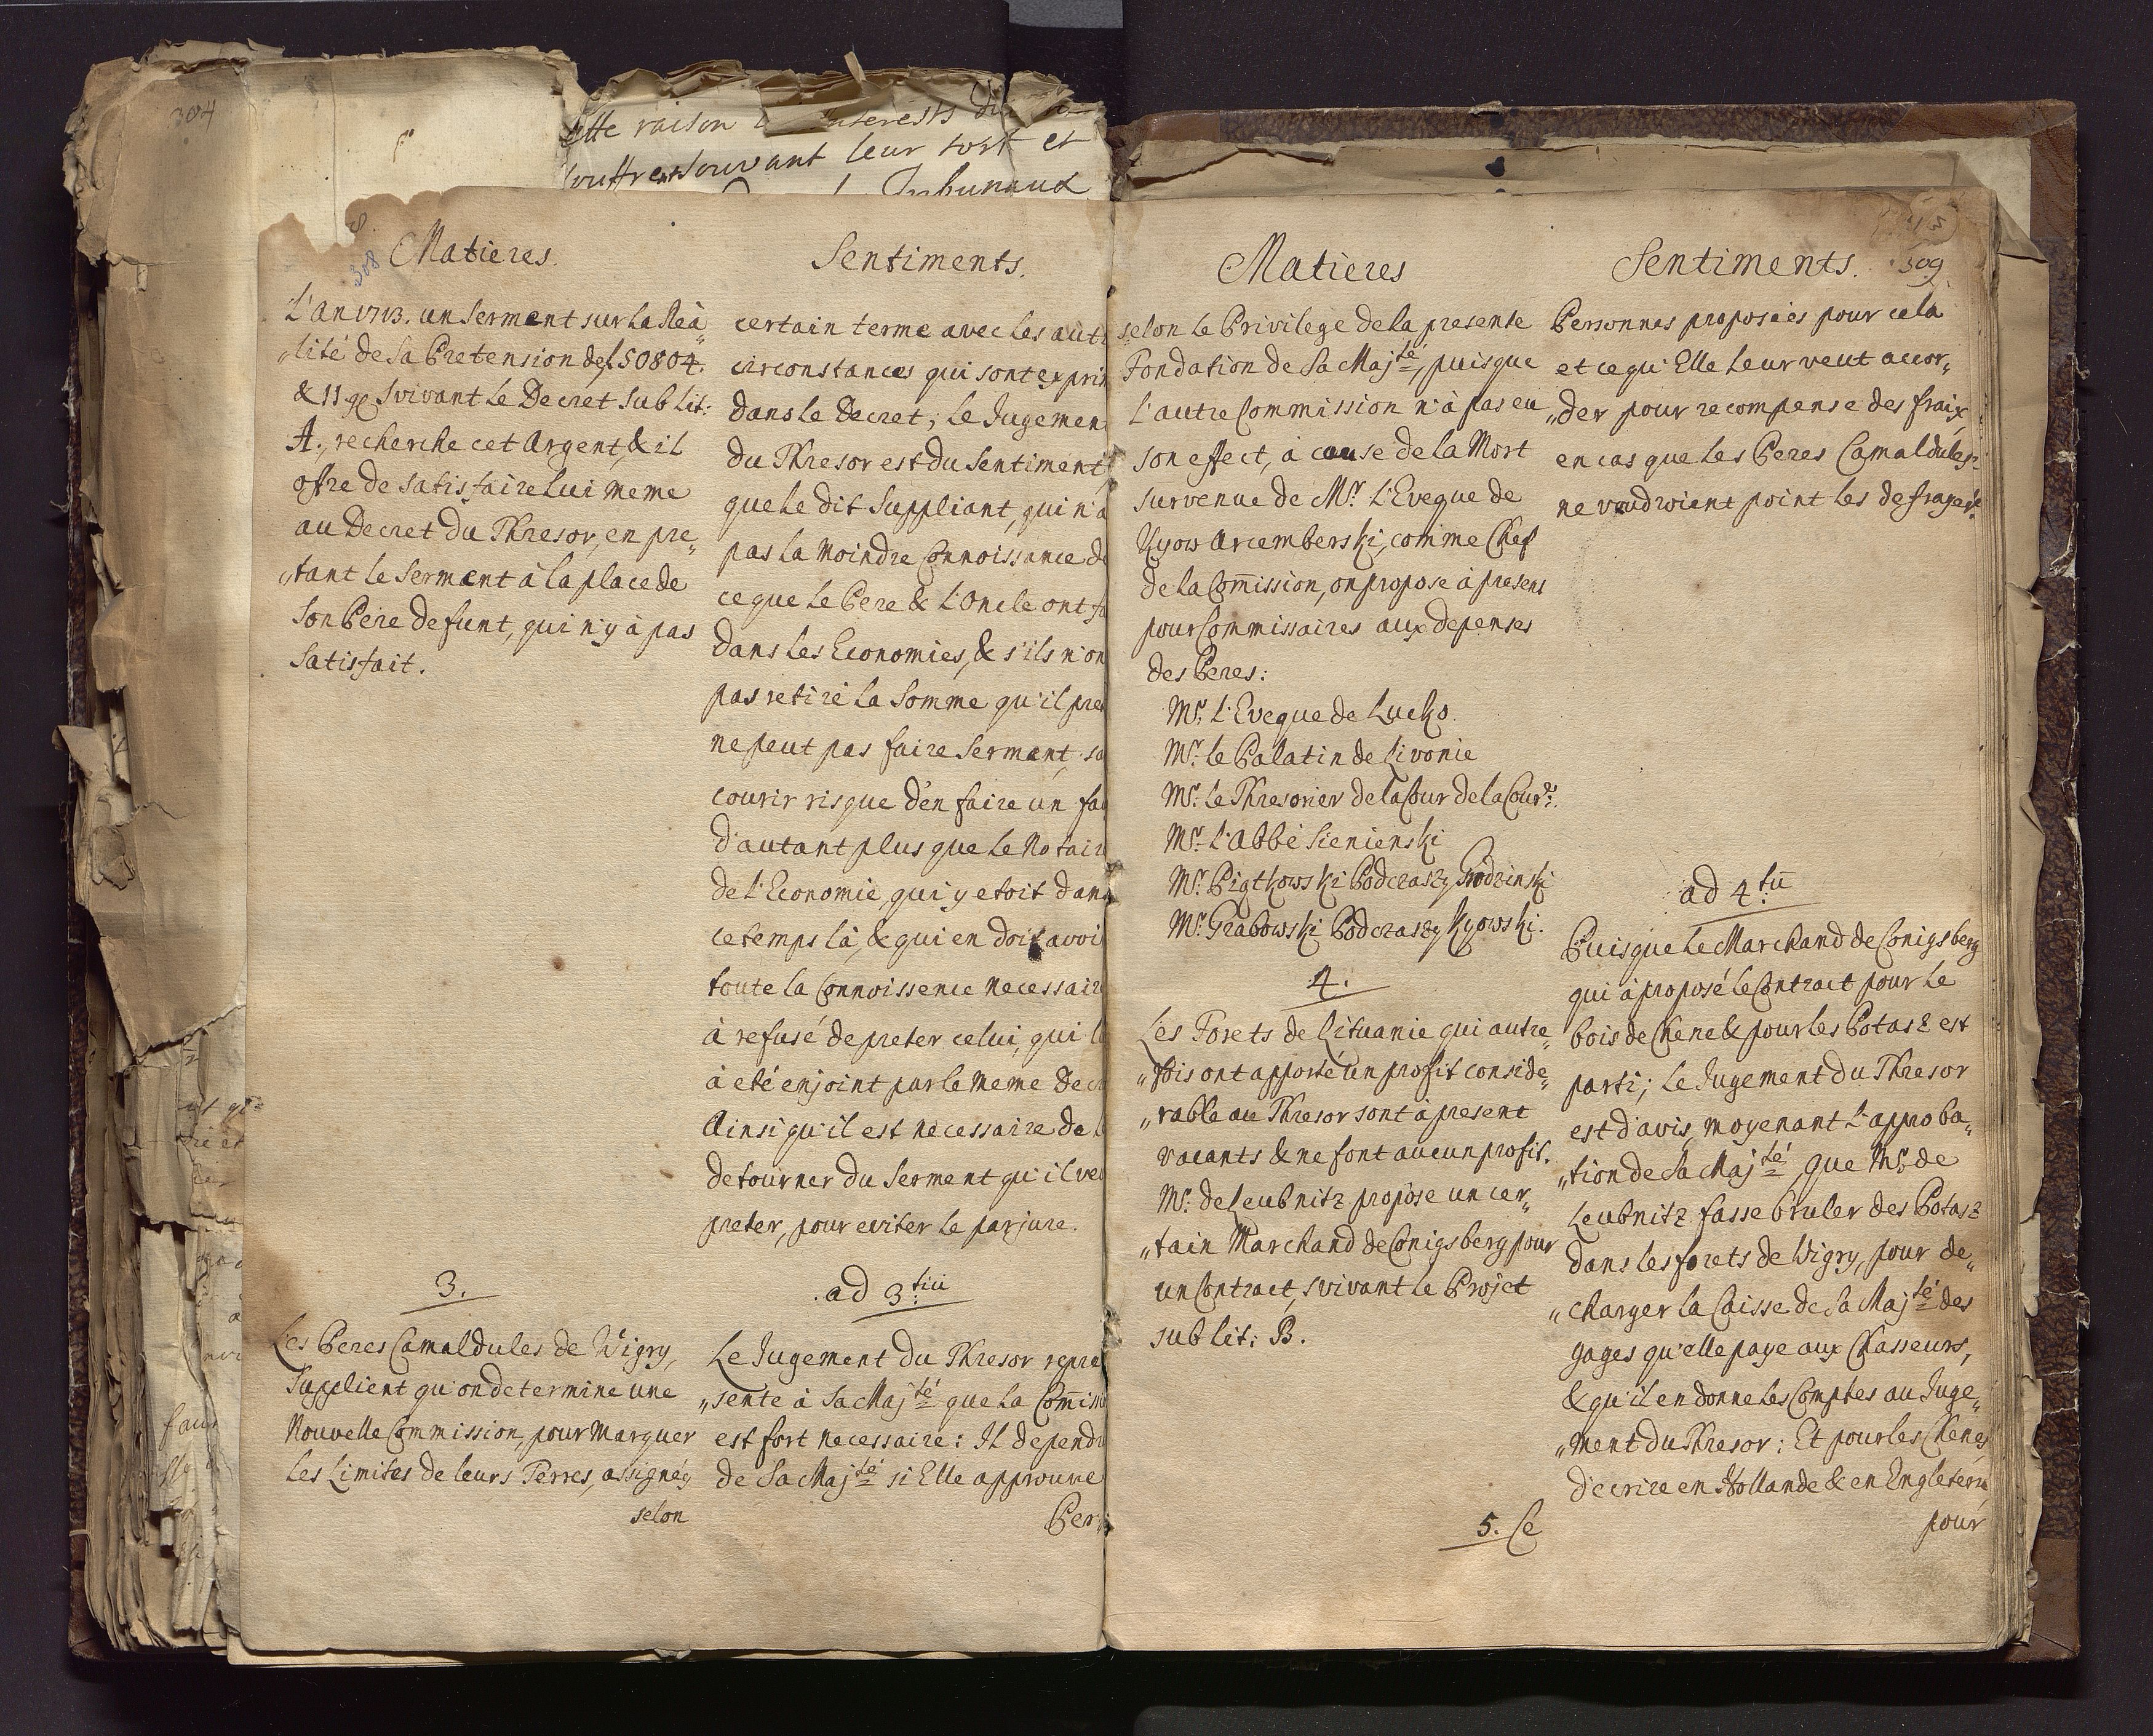 304
Cette raison interests
souffrent souvant leur tort et
Tribunaux
308
Matieres.
L'an 1713. un Serment sur La Rea„
„lité de Sa Pretension de f. 50804.
& 11 gr suivant Le Decret Sub Lit:
A., recherche cet Argent, & il
offre de Satisfaire Lui meme
au Decret du Thresor, en pre„
„tant Le Serment à la place de
Son Pere defunt, qui n'y à pas
Satisfait.
3.
Les Peres Camaldules de Wigry,
Supplient qu'on determine une
Nouvelle Commission, pour Marquer
Les Limites de leurs Terres, assignéz
selon
Sentiments.
certain terme avec Les aut
circonstances qui sont exprim
dans Le Decret; Le Jugemen
du Thresor est du Sentiment
que Le dit Suppliant, qui n'a
pas La Moindre Connoissance de
ce que Le Pere & L'Oncle ont fa
dans Les Economies, & s'ils n'on
pas retiré La Somme qu'il pret
ne peut pas faire Serment, sa
courir risque d'en faire un fau
d'autant plus que Le Notair
de L'Economie, qui y etoit dans
ce temps Là, & qui en doit avoi
toute La Connoissence Necessaire
à refusé de preter celui, qui l
à eté enjoint par Le Meme Dec
Ainsi qu'il est Necessaire de l
detourner du Serment qu'il veu
preter, pour eviter Le parjure.
ad 3.tiū
Le Jugement du Thresor repre
„sente à Sa Maj.té que La Com̄iss
est fort Necessaire: Il depend
de Sa Maj.té si Elle approuve
Per„
Matieres
selon Le Privilege de La presente
Fondation de Sa Maj.té, puisque
L'autre Commission n'à pas eu
son effect, à cause de La Mort
survenue de Mr. L'Eveque de
Kyow Arcemberski, comme Chef
de La Com̄ission, on propose à present
pour Commissaires aux depenses
des Peres:
Mr. L'Eveque de Lucko.
Mr. Le Palatin de Livonie
Mr. Le Thresorier de La Cour de La Cour.
Mr. L'Abbé Sienienski
Mr. Piątkowski Podczaszy Grodzinski
Mr. Grabowski Podczaszy Kyowski.
4.
Les Forets de Lituanie qui autre„
„fois ont apporté un profit conside„
„rable au Thresor sont à present
vacants & ne font aucun profit.
Mr. de Leubnitz propose un cer„
„tain Marchand de Conigsberg pour
un Contract, suivant Le Projet
sub Lit: B.
5. Ce
Sentiments.
309
Personnes proposées pour cela
et ce qu'Elle Leur veut accor„
„der pour recompense des fraix,
en cas que Les Peres Camaldules
ne voudroient point Les defrayer.
ad 4.tū
Puisque Le Marchand de Conigsberg
qui à proposé Le Contract pour Le
bois de Chene & pour Les Potasz est
parti; Le Jugement du Thresor
est d'avis, moyenant L'approba„
„tion de Sa Maj.té, que Mr. de
Leubnitz fasse bruler des Potasz
dans Les forets de Wigry, pour de„
„charger La Caisse de Sa Maj.té des
gages qu'elle paye aux Chasseurs,
& qu'il en donne Les Comptes au Juge„
„ment du Thresor: Et pour Les Chenes
d'ecrire en Hollande & en Engleterre
pour